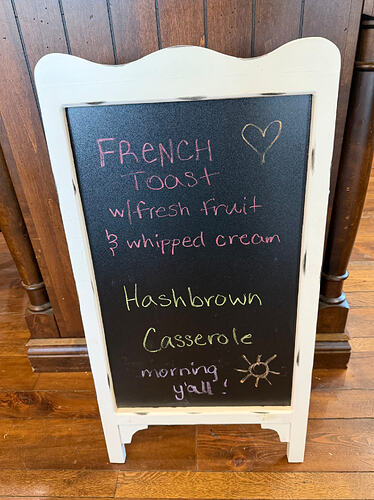 FRENCH
Toast
w/fresh fruit
& whipped cream
Hashbrown
Casserole
morning
y'all!